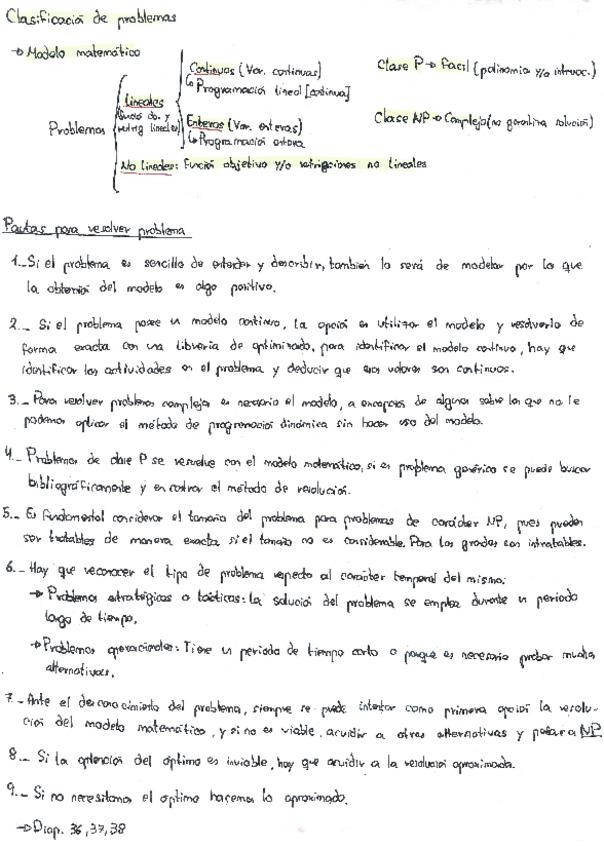 Clasificación de problemas
→ Modelo matemático
Continuos (Var. continuas)
↳ Programación lineal [continua]
Clase P → Facil (polinomia y/o introvoc.)
Lineales
y restrig lineales)
Problemas
Enteros (Var. enteras)
↳ Programación entera
Clase NP → Complejo (no garantiza solución)
No Lineales: Función objetivo y/o restrigciones no lineales
Pautas para resolver problema
1._ Si el problema es sencillo de entender y describir, también lo será de modelar por lo que
la obtención del modelo es algo positivo.
2._ Si el problema posee un modelo continuo, la opción es utilizar el modelo y resolverlo de
forma exacta con una librería de optimizado, para identificar el modelo continuo, hay que
identificar las actividades en el problema y deducir que esos valores son continuos.
3._ Para resolver problemas complejos es necesario el modelo, a excepción de algunos sobre los que no le
podemos aplicar el método de programación dinámica sin hacer uso del modelo.
4._ Problemas de clase P se resuelve con el modelo matemático, si es problema genérico se puede buscar
bibliográficamente y encontrar el método de resolución.
5._ Es fundamental considerar el tamaño del problema para problemas de carácter NP, pues pueden
ser tratables de manera exacta si el tamaño no es considerable. Para los grandes son intratables.
6._ Hay que reconocer el tipo de problema respecto al carácter temporal del mismo:
→ Problemas estratégicos o tácticos: la solución del problema se emplea durante un periodo
largo de tiempo.
→ Problemas operacionales: Tiene un periodo de tiempo corto o porque es necesario probar muchas
alternativas.
7._ Ante el desconocimiento del problema, siempre se puede intentar como primera opción la resolu-
ción del modelo matemático, y si no es viable, acudir a otras alternativas y pasar a NP.
8._ Si la obtención del óptimo es inviable, hay que acudir a la resolución aproximada.
9._ Si no necesitamos el óptimo hacemos lo aproximado.
→ Diap. 36, 37, 38